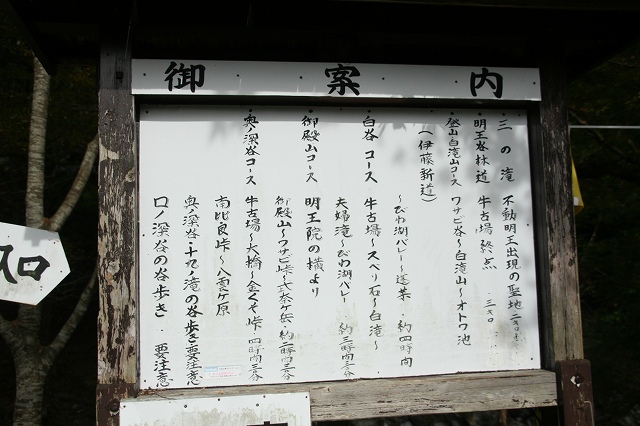 御案内
三の滝 不動明王出現の聖地 二キロ
明王谷林道 牛古場終点 三キロ
登山白滝山コース ワサビ谷〜白滝山〜オトワ池
(伊藤新道)
〜びわ湖バレー〜蓬莱 約四時間
白谷コース 牛古場〜スベリ石〜白滝〜
夫婦滝〜びわ湖バレー 約三時間三分
御殿山コース 明王院の横より
御殿山〜ワサビ峠〜武奈ヶ岳 約二時間三分
奥ノ深谷コース 牛古場〜大橋〜金くそ峠 四時間三分
南比良峠〜八雲ヶ原
奥ノ深谷・十九ノ滝の谷歩き要注意
口ノ深谷の谷歩き・要注意
口